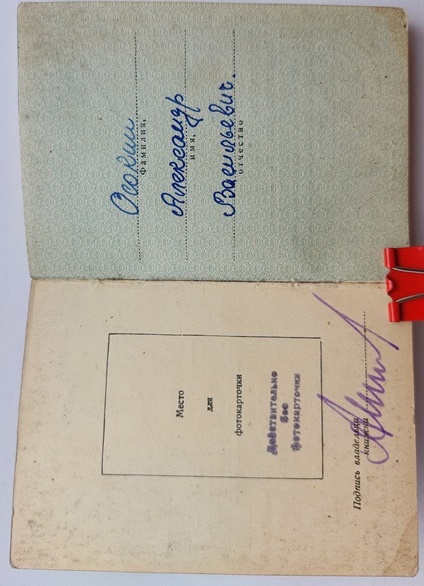 Осокин
фамилия,
Александр
имя,
Васильевич.
отчество
Место
для
фотокарточки
Действительно
без
фотокарточки
Подпись владельца
книжки